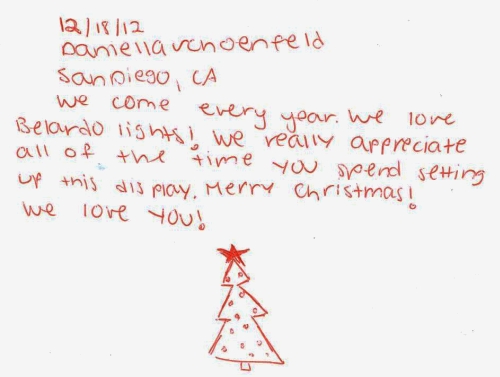 12/18/12
Daniella Schoenfeld
San Diego, CA
We come every year. We love
Belardo lights! We really appreciate
all of the time you spend setting
up this display. Merry Christmas!
We love you!